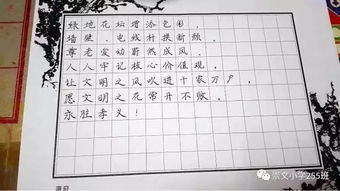 绿地花坛增添色彩.
墙壁.电线杆换新颜.
尊老爱幼蔚然成风.
人人牢记核心价值观.
让文明之风吹进千家万户,
愿文明之花常开不败.
永胜孝义!
崇文小学255班